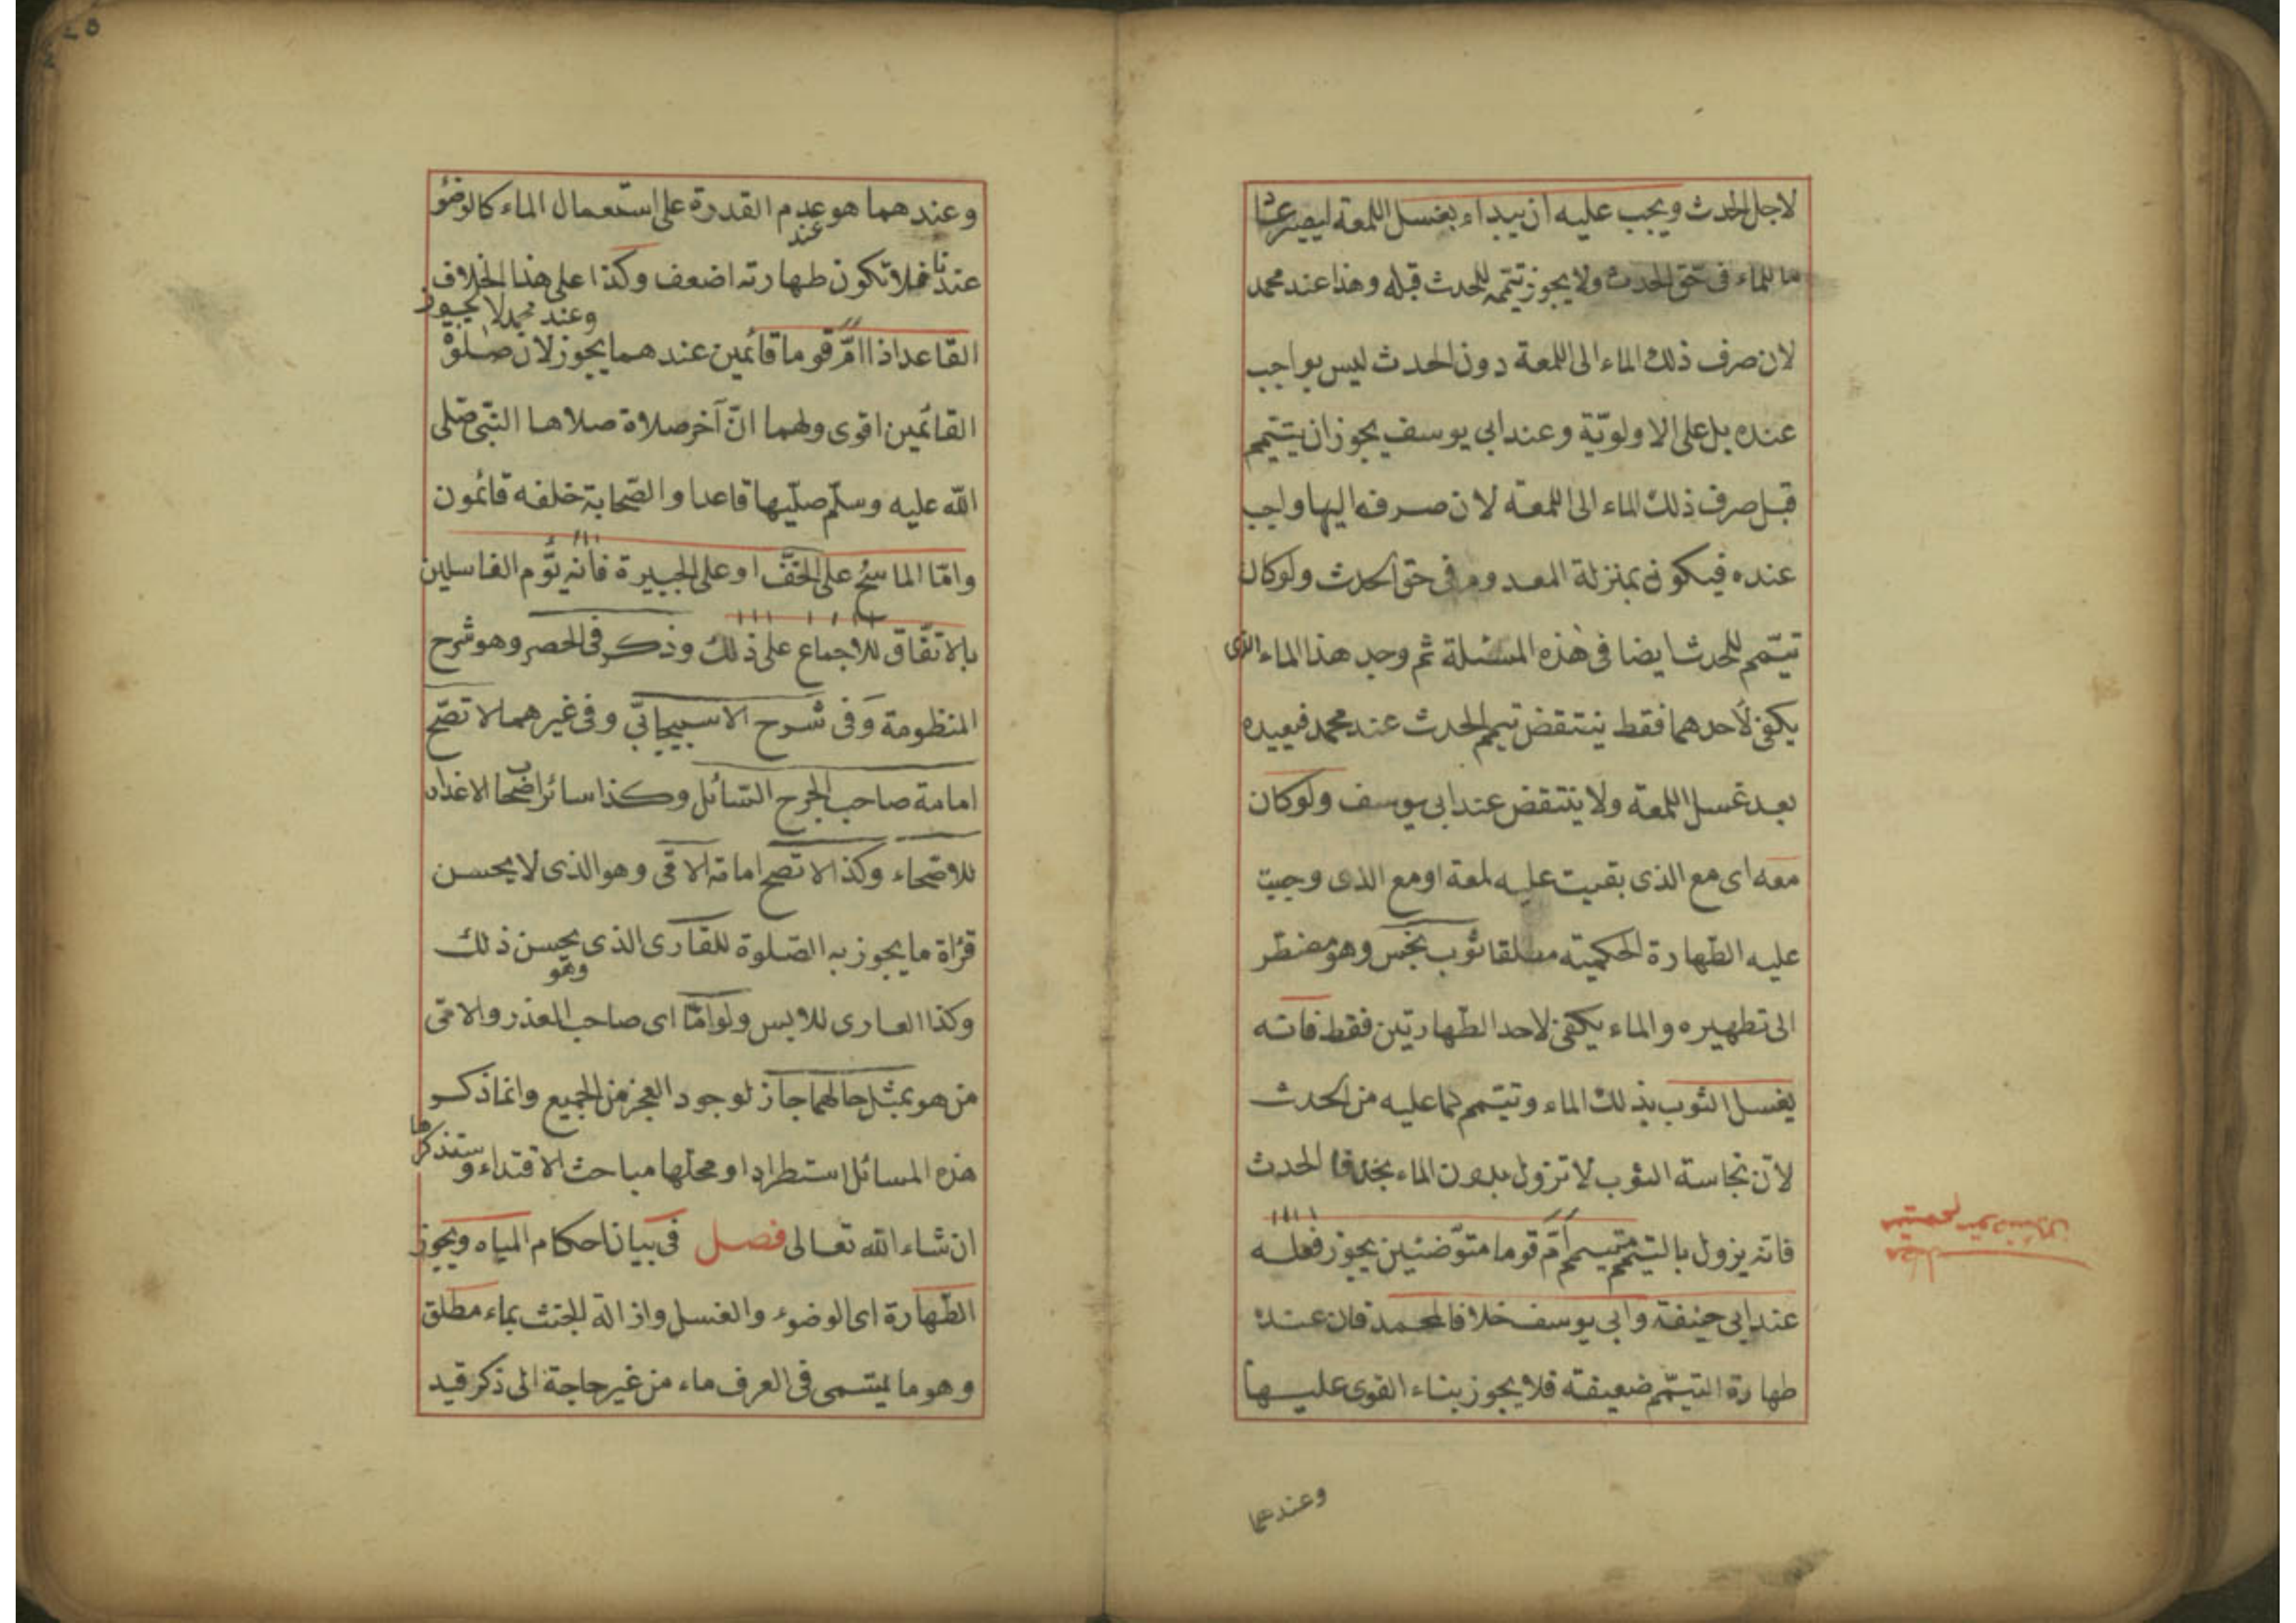 لاجل الحدث ويجب عليه ان يبداء بغسل اللمعة ليصير عادما
للماء فى حق الحدث ولا يجوز تيممه للحدث قبله وهذا عند محمد
لان صرف ذلك الماء الى اللمعة دون الحدث ليس بواجب
عنده بل على الاولوية وعند ابى يوسف يجوز ان يتيمم
قبل صرف ذلك الماء الى اللمعة لان صرفه اليها واجب
عنده فيكون بمنزلة المعدوم فى حق الحدث ولو كان
تيمم للحدث ايضا فى هذه المسئلة ثم وجد هذا الماء الذى
يكفى لاحدهما فقط ينتقض تيمم الحدث عند محمد فيعيده
بعد غسل اللمعة ولا ينتقض عند ابى يوسف ولو كان
معه اى مع الذى بقيت عليه لمعة او مع الذى وجبت
عليه الطهارة الحكمية مطلقا ثوب نجس وهو مضطر
الى تطهيره والماء يكفى لاحد الطهارتين فقط فانه
يغسل الثوب بذلك الماء وتيمم لما عليه من الحدث
لان نجاسة الثوب لا تزول بدون الماء بخلاف الحدث
فانه يزول بالتيمم متيمم امّ قوما متوضئين يجوز فعله
عند ابى حنيفة وابى يوسف خلافا لمحمد فان عنده
طهارة التيمم ضعيفة فلا يجوز بناء القوى عليها
وعندهما
وعندهما هو عدم القدرة على استعمال الماء كالوضوء
عند
عندنا فلا تكون طهارته اضعف وكذا على هذا الخلاف
وعند محمد لا يجوز
القاعد اذا امّ قوما قائمين عندهما يجوز لان صلوة
القائمين اقوى ولهما انّ آخر صلاة صلاها النبى صلى
الله عليه وسلم صليها قاعدا والصحابة خلفه قائمون
وامّا الماسح على الخف او على الجبيرة فانه يؤم الغاسلين
بالاتفاق للاجماع على ذلك وذكر فى الحصر وهو شرح
المنظومة وفى شرح الاسبيجابى وفى غيرهما لا تصح
امامة صاحب الجرح السائل وكذا سائر اصحاب الاعذار
للاصحاء وكذا لا تصح امامة الامى وهو الذى لا يحسن
قرأة ما يجوز به الصلوة للقارى الذى يحسن ذلك
وهو
وكذا العارى للابس ولو امّا اى صاحب العذر والامى
من هو بمثل حالهما جاز لوجود العجز من الجميع وانما ذكر
هذه المسائل استطرادا ومحلها مباحث الاقتداء وستذكرها
ان شاء الله تعالى فصل فى بيان احكام المياه ويجوز
الطهارة اى الوضوء والغسل وازالة الخبث بماء مطلق
وهو ما يسمى فى العرف ماء من غير حاجة الى ذكر قيد